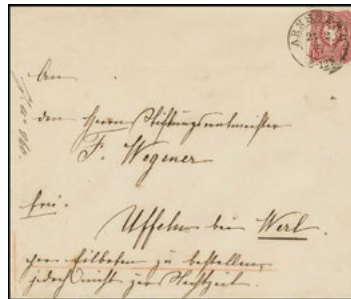 An
den Herrn Stiftungsrentmeister
F. Wegener
frei.
Uffeln bei Werl.
per Eilboten zu bestellen,
jedoch nicht zur Nachtzeit.